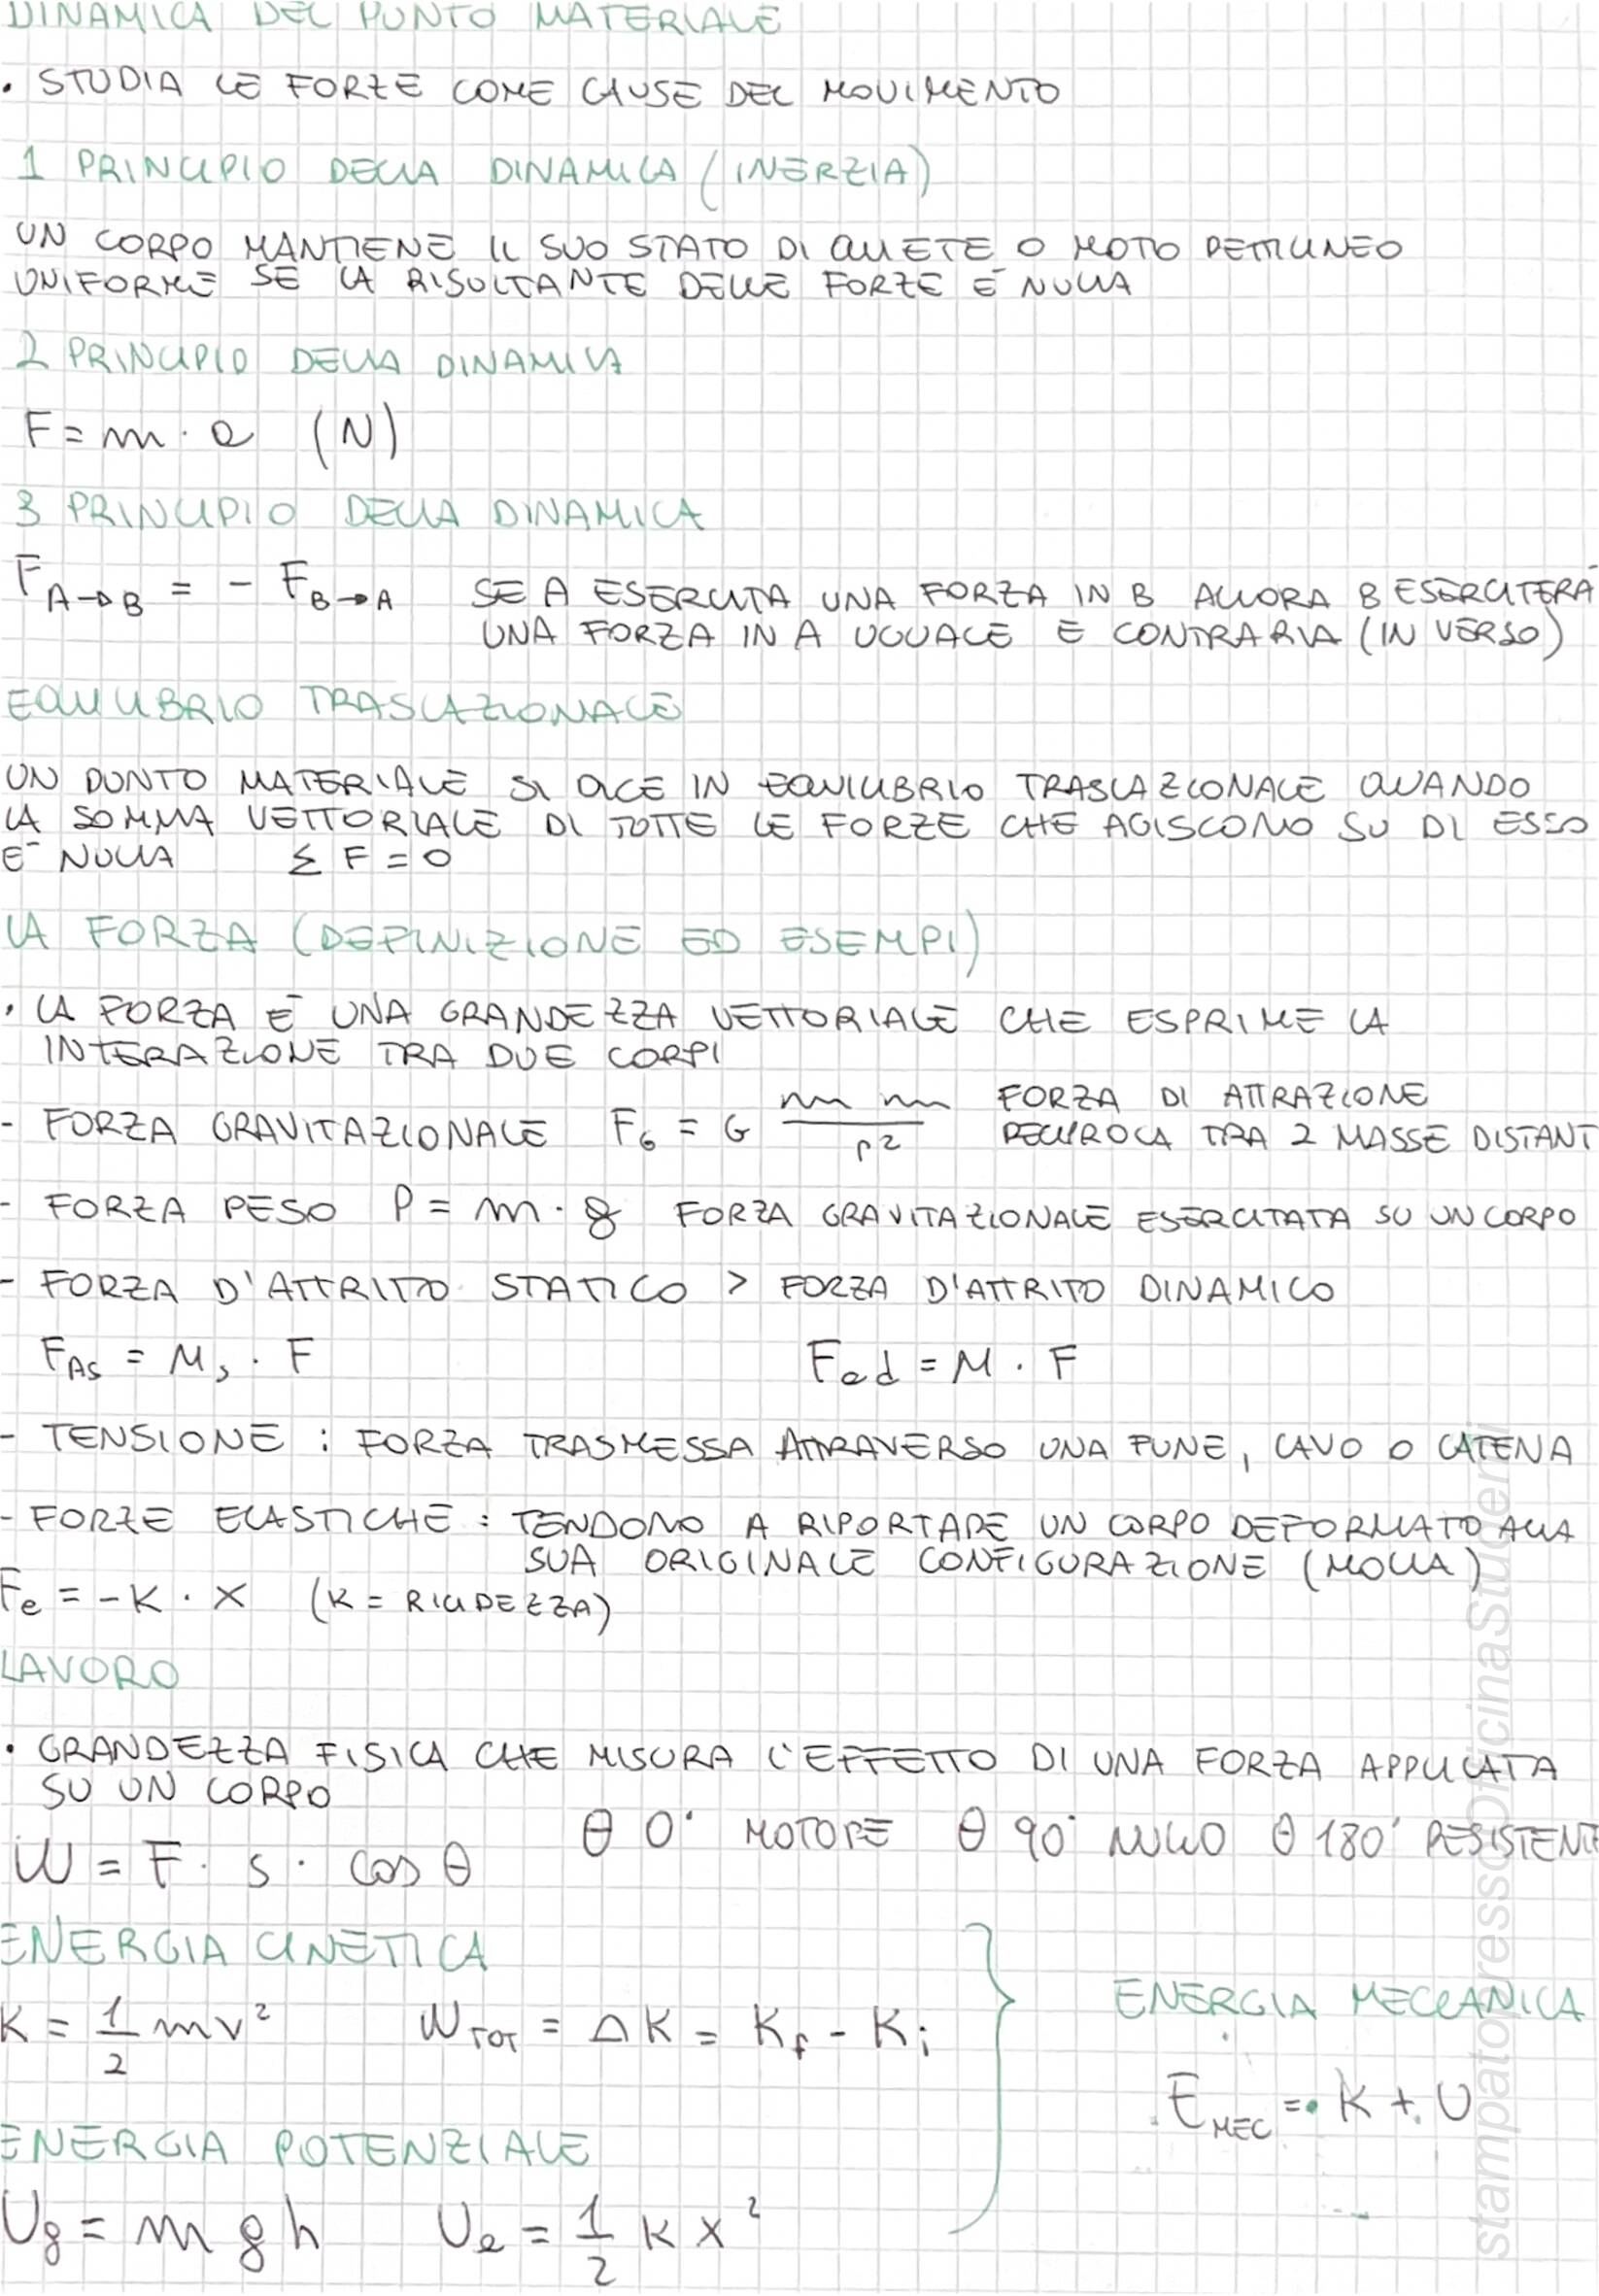 DINAMICA DEL PUNTO MATERIALE
• STUDIA LE FORZE COME CAUSE DEL MOVIMENTO
1 PRINCIPIO DELLA DINAMICA (INERZIA)
UN CORPO MANTIENE IL SUO STATO DI QUIETE O MOTO RETTILINEO
UNIFORME SE LA RISULTANTE DELLE FORZE È NULLA
2 PRINCIPIO DELLA DINAMICA
F = m · a (N)
3 PRINCIPIO DELLA DINAMICA
F A→B = - F B→A SE A ESERCITA UNA FORZA IN B ALLORA B ESERCITERÀ
UNA FORZA IN A UGUALE E CONTRARIA (IN VERSO)
EQUILIBRIO TRASLAZIONALE
UN PUNTO MATERIALE SI DICE IN EQUILIBRIO TRASLAZIONALE QUANDO
LA SOMMA VETTORIALE DI TUTTE LE FORZE CHE AGISCONO SU DI ESSO
È NULLA Σ F = 0
LA FORZA (DEFINIZIONE ED ESEMPI)
• LA FORZA È UNA GRANDEZZA VETTORIALE CHE ESPRIME LA
INTERAZIONE TRA DUE CORPI
- FORZA GRAVITAZIONALE F_G = G (m m)/r² FORZA DI ATTRAZIONE
RECIPROCA TRA 2 MASSE DISTANT
- FORZA PESO P = m · g FORZA GRAVITAZIONALE ESERCITATA SU UN CORPO
- FORZA D'ATTRITO STATICO > FORZA D'ATTRITO DINAMICO
F_AS = M_s · F F_ad = M · F
- TENSIONE : FORZA TRASMESSA ATTRAVERSO UNA FUNE, CAVO O CATENA
- FORZE ELASTICHE : TENDONO A RIPORTARE UN CORPO DEFORMATO ALLA
SUA ORIGINALE CONFIGURAZIONE (MOLLA)
F_e = -K · X (K = RIGIDEZZA)
LAVORO
• GRANDEZZA FISICA CHE MISURA L'EFFETTO DI UNA FORZA APPLICATA
SU UN CORPO
θ 0° MOTORE θ 90° NULLO θ 180° RESISTENTE
W = F · s · cos θ
ENERGIA CINETICA
K = 1/2 mv² W_TOT = ΔK = K_f - K_i
ENERGIA MECCANICA
E_MEC = K + U
ENERGIA POTENZIALE
U_g = m g h U_e = 1/2 K X²
stampatopressoOfficinaStudenti